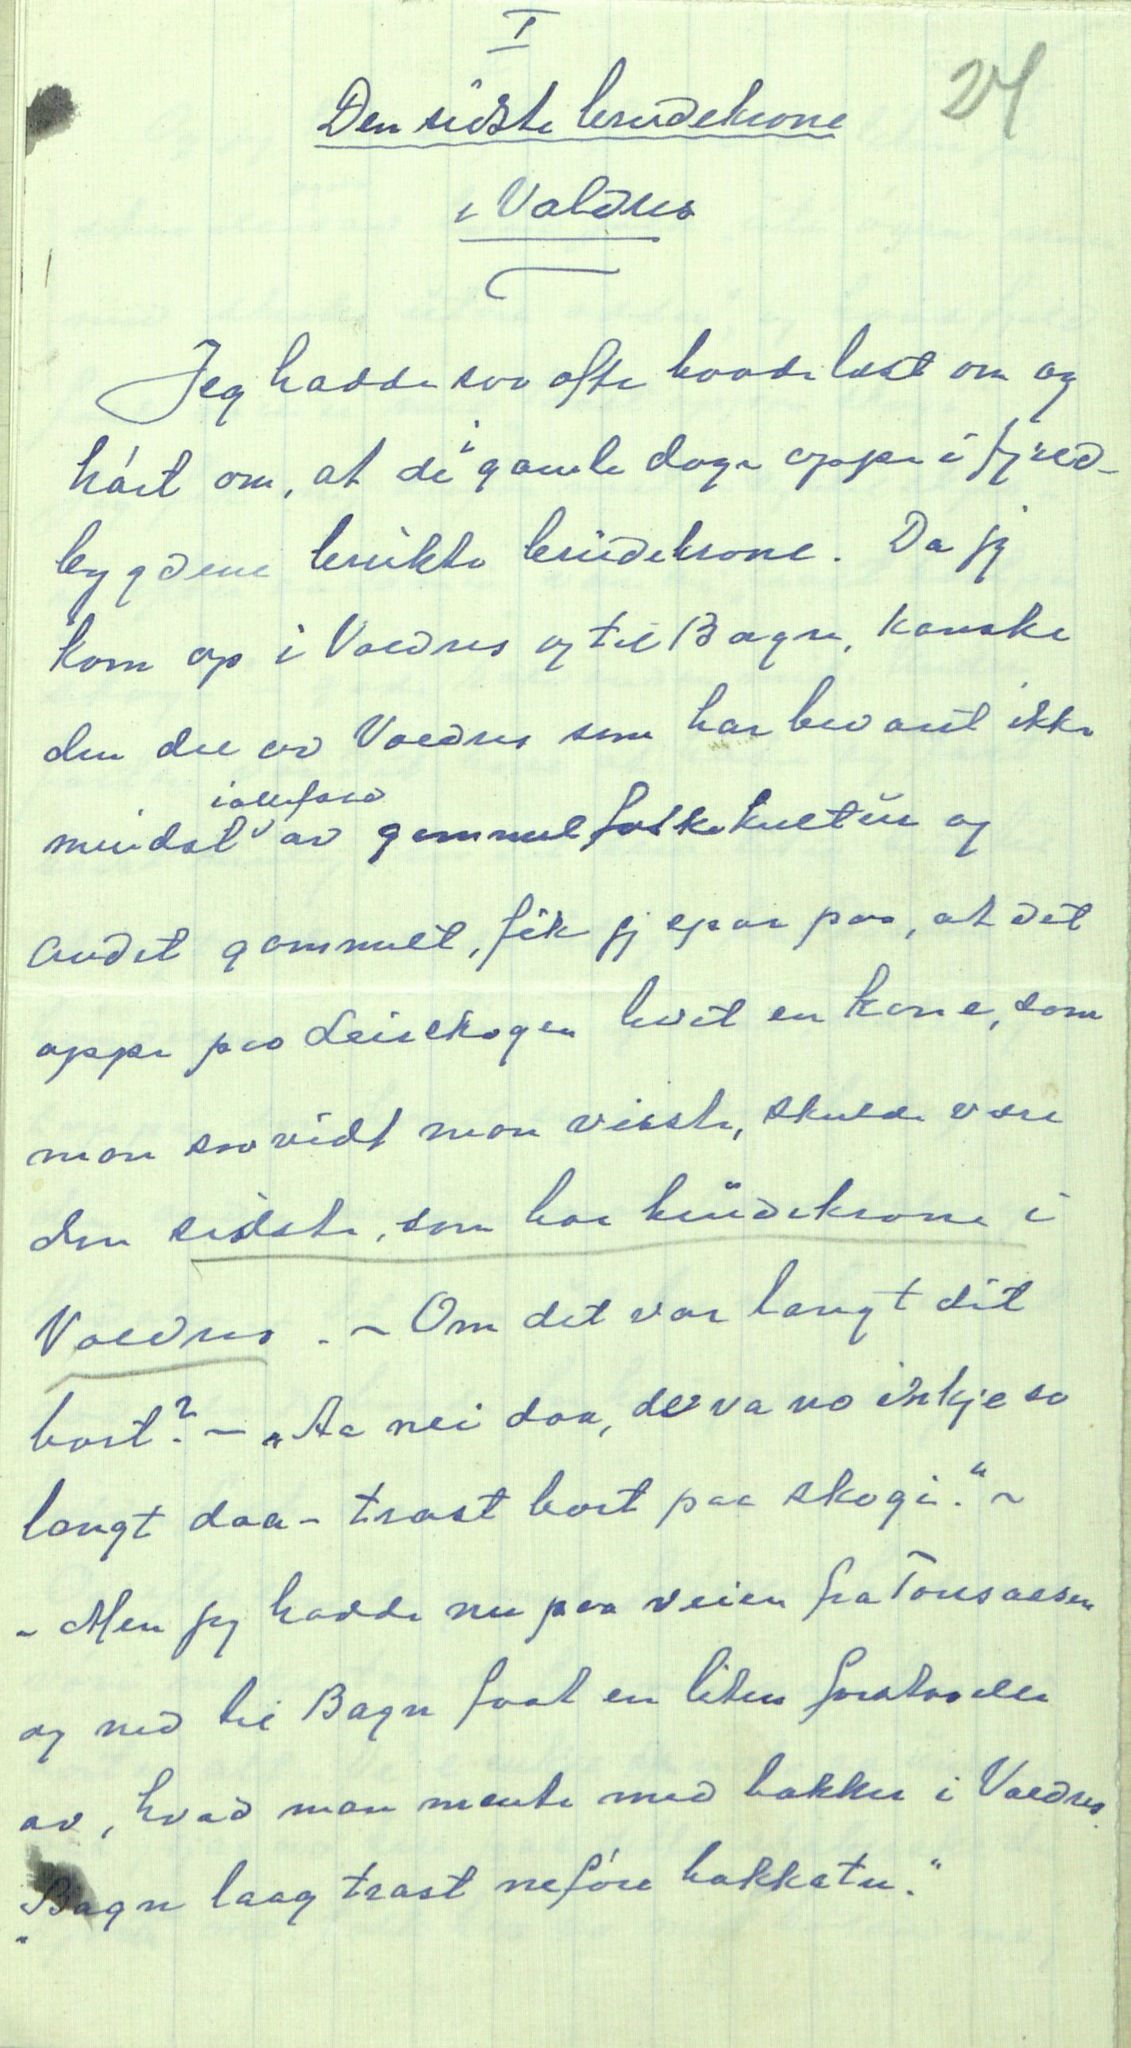 I
24
Den sidste brudekrone
i Valdres
Jeg hadde saa ofte baade læst om og
hørt om, at de i gamle dage oppe i fjeld-
bygdene brukte brudekrone. Da jeg
kom op i Valdres og til Bagn, kanske
den del av Valdres som har bevart ikke
iallefald
mindst av gammel folkekultur og
andet gammelt, fik jeg spor paa, at det
oppe paa Leirskogen bodde en kone, som
man saavidt man visste, skulde være
den sidste, som har brudekrone i
Valdres. - Om det var langt dit
bort? - "Aa nei daa, de va no inkje so
langt daa - trast bort paa skogi." -
- Men jeg hadde nu paa veien fra Tonsaasen
og ned til Bagn faat en liten forstaaelse
av, hvad man mente med bakker i Valdres.
"Bagn laag trast neføre bakkatn."